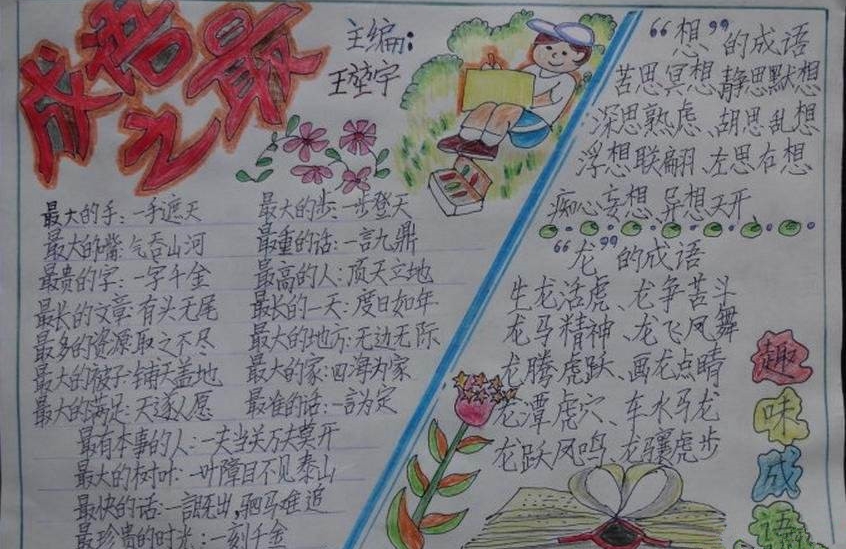 成语之最
主编:
王堃宇
最大的手:一手遮天
最大的嘴:气吞山河
最贵的字:一字千金
最长的文章:有头无尾
最多的资源:取之不尽
最大的被子:铺天盖地
最大的满足:天遂人愿
最大的步:一步登天
最重的话:一言九鼎
最高的人:顶天立地
最长的一天:度日如年
最大的地方:无边无际
最大的家:四海为家
最准的话:一言为定
最有本事的人:一夫当关万夫莫开
最大的树叶:一叶障目不见泰山
最快的话:一言既出,驷马难追
最珍贵的时光:一刻千金
“想”的成语
苦思冥想、静思默想
深思熟虑、胡思乱想
浮想联翩、左思右想
痴心妄想、异想天开
“龙”的成语
生龙活虎、龙争苦斗
龙马精神、龙飞凤舞
龙腾虎跃、画龙点睛
龙潭虎穴、车水马龙
龙跃凤鸣、龙骧虎步
趣味成语